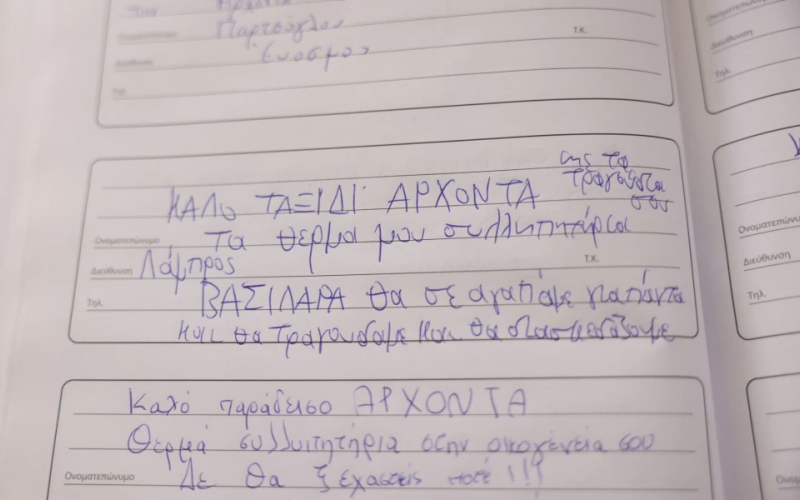 Παρτσόγλου
Ονοματεπώνυμο
Εύοσμος
Τ.Κ.
Διεύθυνση
Τηλ.
με τα
ΚΑΛΟ ΤΑΞΙΔΙ ΑΡΧΟΝΤΑ τραγούδια
σου
Τα θερμα μου συλλητητάρια
Ονοματεπώνυμο
Λάμπρος
Διεύθυνση
Τ.Κ.
ΒΑΣΙΛΑΡΑ θα σε αγαπάμε για πάντα
Τηλ.
και θα τραγουδαμε και θα διασκεδάζουμε
Καλό παράδεισο ΑΡΧΟΝΤΑ
Θερμά συλλυπητήρια στην οικογένεια σου
Δε θα ξεχαστείς ποτέ!!!
Ονοματεπώνυμο
Ονοματεπώνυμο
Διεύθυνση
Τηλ.
Ονοματεπώνυμο
Διεύθυνση
Τηλ.